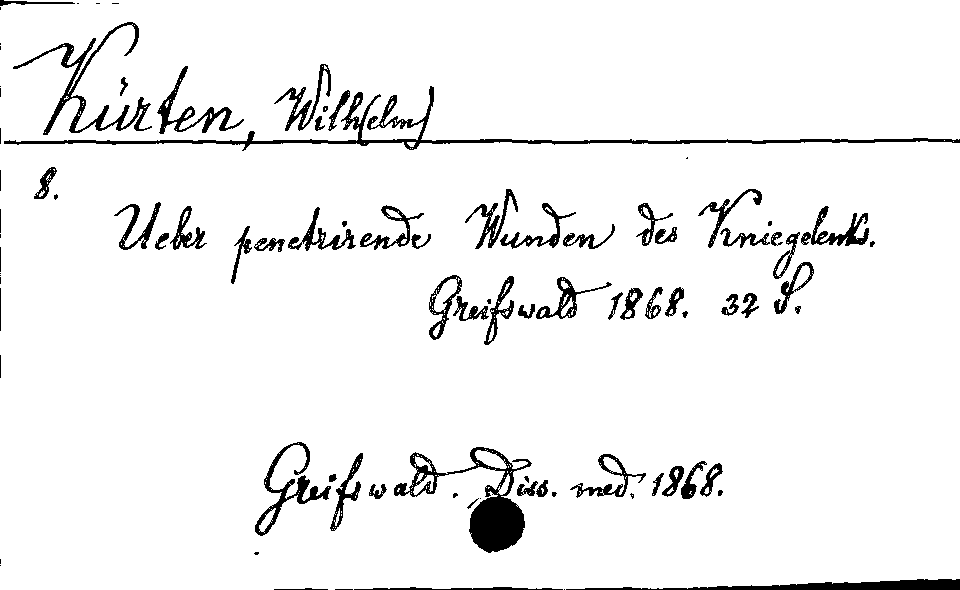 Kürten, Wilh(elm)
8.
Ueber penetrirende Wunden des Kniegelenks.
Greifswald 1868. 32 S.
Greifswald. Diss. med. 1868.